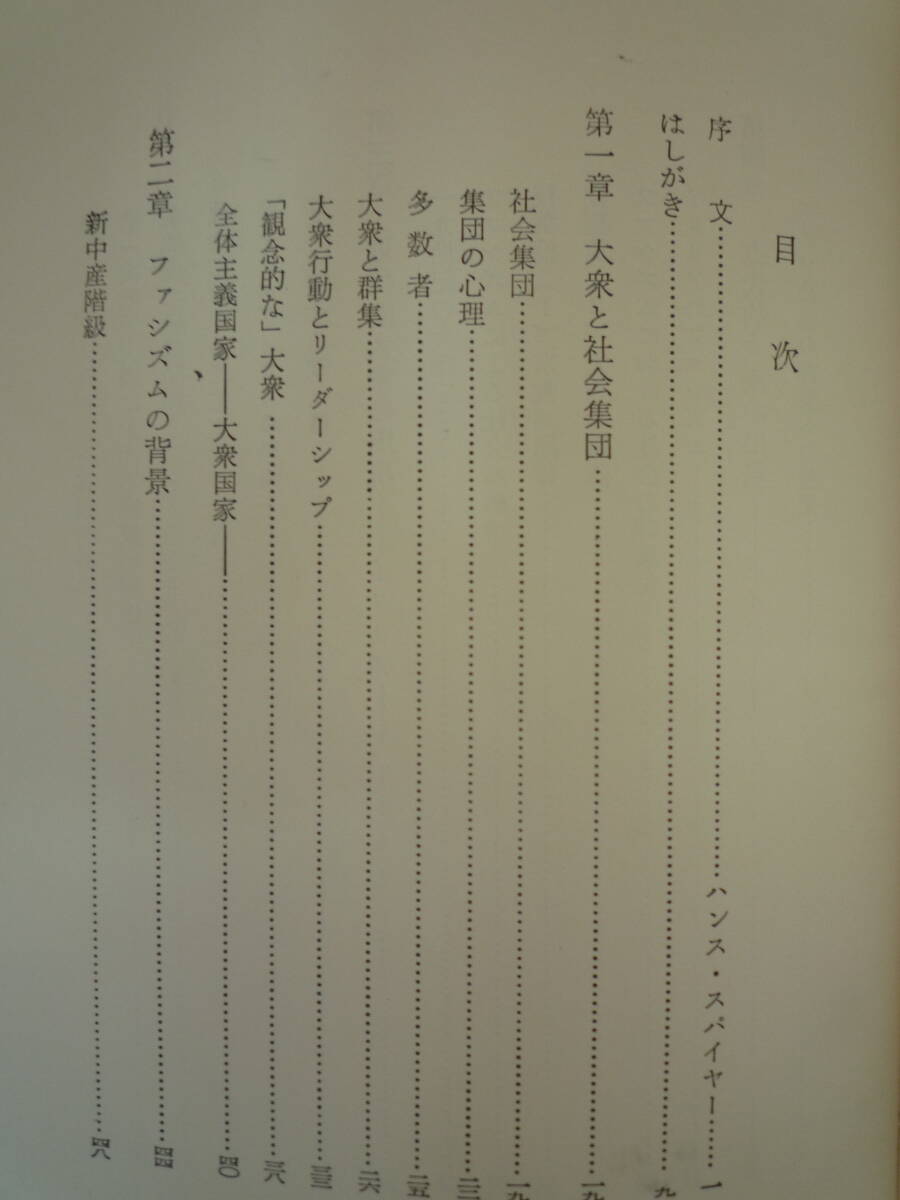 目次
序文……ハンス・スパイヤー……一
はしがき……九
第一章 大衆と社会集団……一九
社会集団……一九
集団の心理……二二
多数者……二五
大衆と群集……二六
大衆行動とリーダーシップ……三三
「観念的な」大衆……三八
全体主義国家――大衆国家――……四〇
第二章 ファシズムの背景……四四
新中産階級……四八